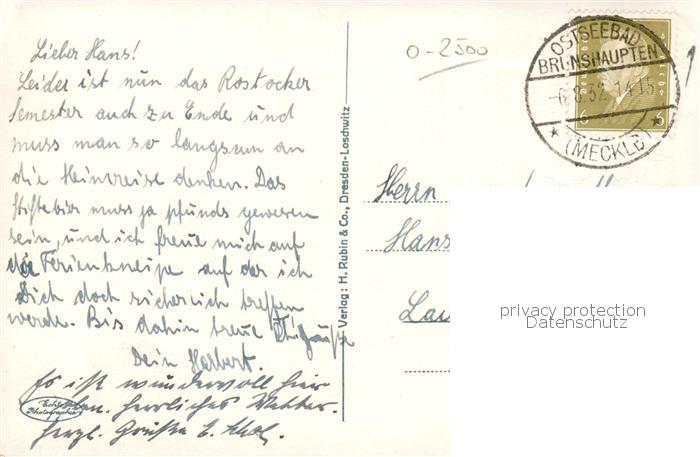 Lieber Hans!
Leider ist nun das Rostocker
Semester auch zu Ende und
muss man so langsam an
die Heimreise denken. Das
Stiftebier muss ja pfunds gewesen
sein, und ich freue mich auf
die Ferienkneipe auf der ich
Dich doch sicherlich treffen
werde. Bis dahin treue
Dein Herbert.
Es ist wundervoll hier
herrliches Wetter.
Herzl. Grüße E.
Echte
Photographie
Verlag: H. Rubin & Co., Dresden-Loschwitz
0-2500
OSTSEEBAD
BRUNSHAUPTEN
-6.8.32.14-15
* (MECKLB) *
6 6
Herrn
Hans
privacy protection
Datenschutz